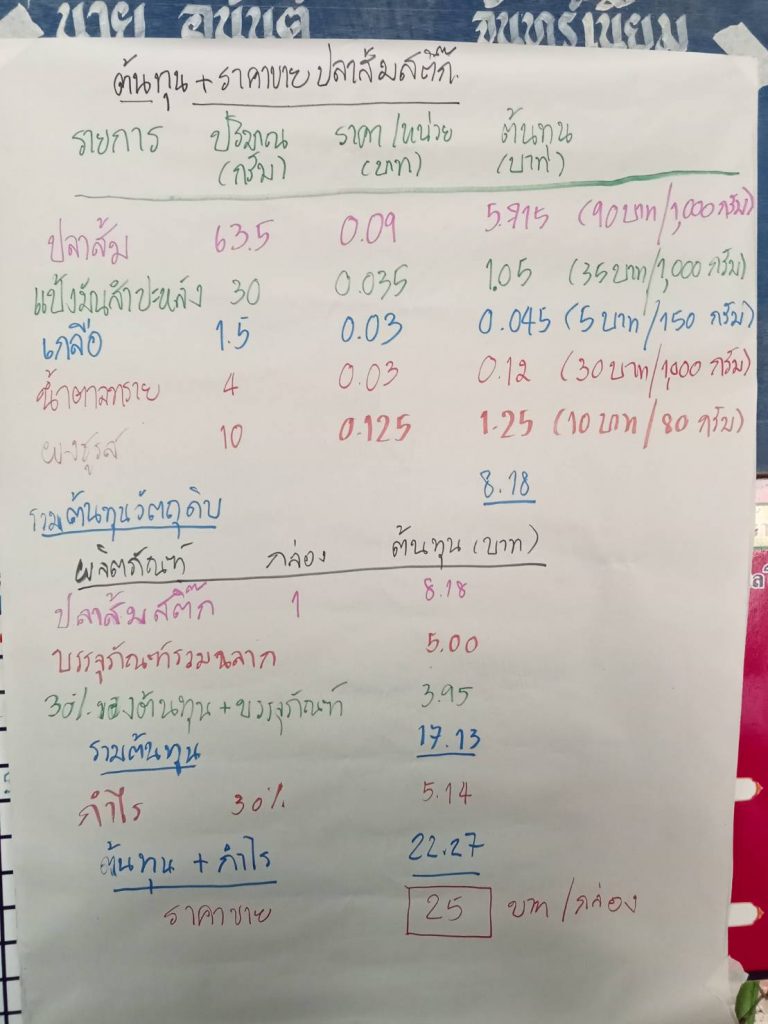 นาย อนันต์ จันทร์เนียม
ต้นทุน + ราคาขาย ปลาส้มสติ๊ก
รายการ ปริมาณ (กรัม) ราคา/หน่วย (บาท) ต้นทุน (บาท)
ปลาส้ม 63.5 0.09 5.715 (90 บาท/1,000 กรัม)
แป้งมันสำปะหลัง 30 0.035 1.05 (35 บาท/1,000 กรัม)
เกลือ 1.5 0.03 0.045 (5 บาท/150 กรัม)
น้ำตาลทราย 4 0.03 0.12 (30 บาท/1,000 กรัม)
ผงชูรส 10 0.125 1.25 (10 บาท/80 กรัม)
รวมต้นทุนวัตถุดิบ 8.18
ผลิตภัณฑ์ กล่อง ต้นทุน (บาท)
ปลาส้มสติ๊ก 1 8.18
บรรจุภัณฑ์รวมฉลาก 5.00
30% ของต้นทุน + บรรจุภัณฑ์ 3.95
รวมต้นทุน 17.13
กำไร 30% 5.14
ต้นทุน + กำไร 22.27
ราคาขาย 25 บาท/กล่อง